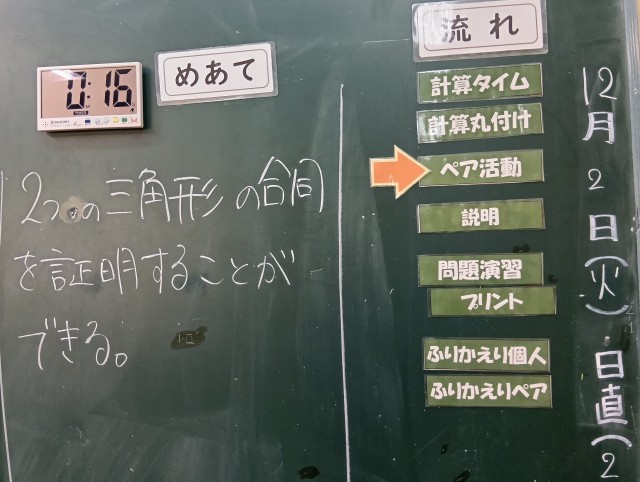 0:16
めあて
2つの三角形の合同
を証明することが
できる。
流れ
計算タイム
計算丸付け
ペア活動
説明
問題演習
プリント
ふりかえり個人
ふりかえりペア
12月2日(火)日直(2